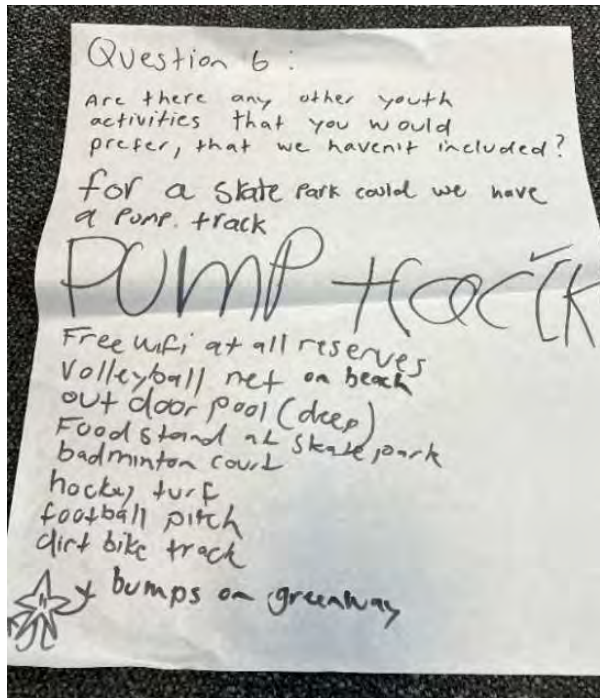 Question 6:
Are there any other youth
activities that you would
prefer, that we haven't included?
for a skate park could we have
a pump. track
PUMP track
Free wifi at all reserves
Volleyball net on beach
out door pool (deep)
Food stand at skate park
badminton court
hockey turf
football pitch
dirt bike track
bumps on greenway